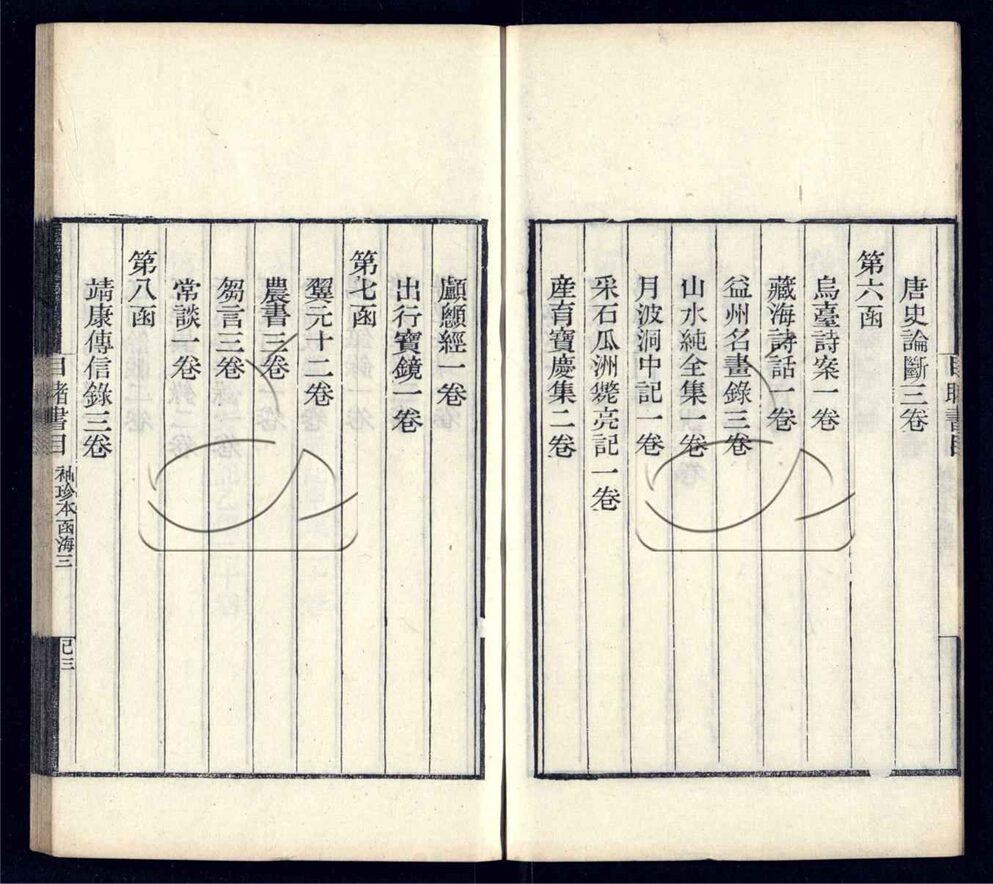 唐史論斷三卷
第六函
烏臺詩案一卷
藏海詩話一卷
益州名畫錄三卷
山水純全集一卷
月波洞中記一卷
采石瓜洲斃亮記一卷
產育寶慶集二卷
顱顖經一卷
出行寶鏡一卷
第七函
翼元十二卷
農書三卷
芻言三卷
常談一卷
第八函
靖康傳信錄三卷
書目
袖珍本函海三